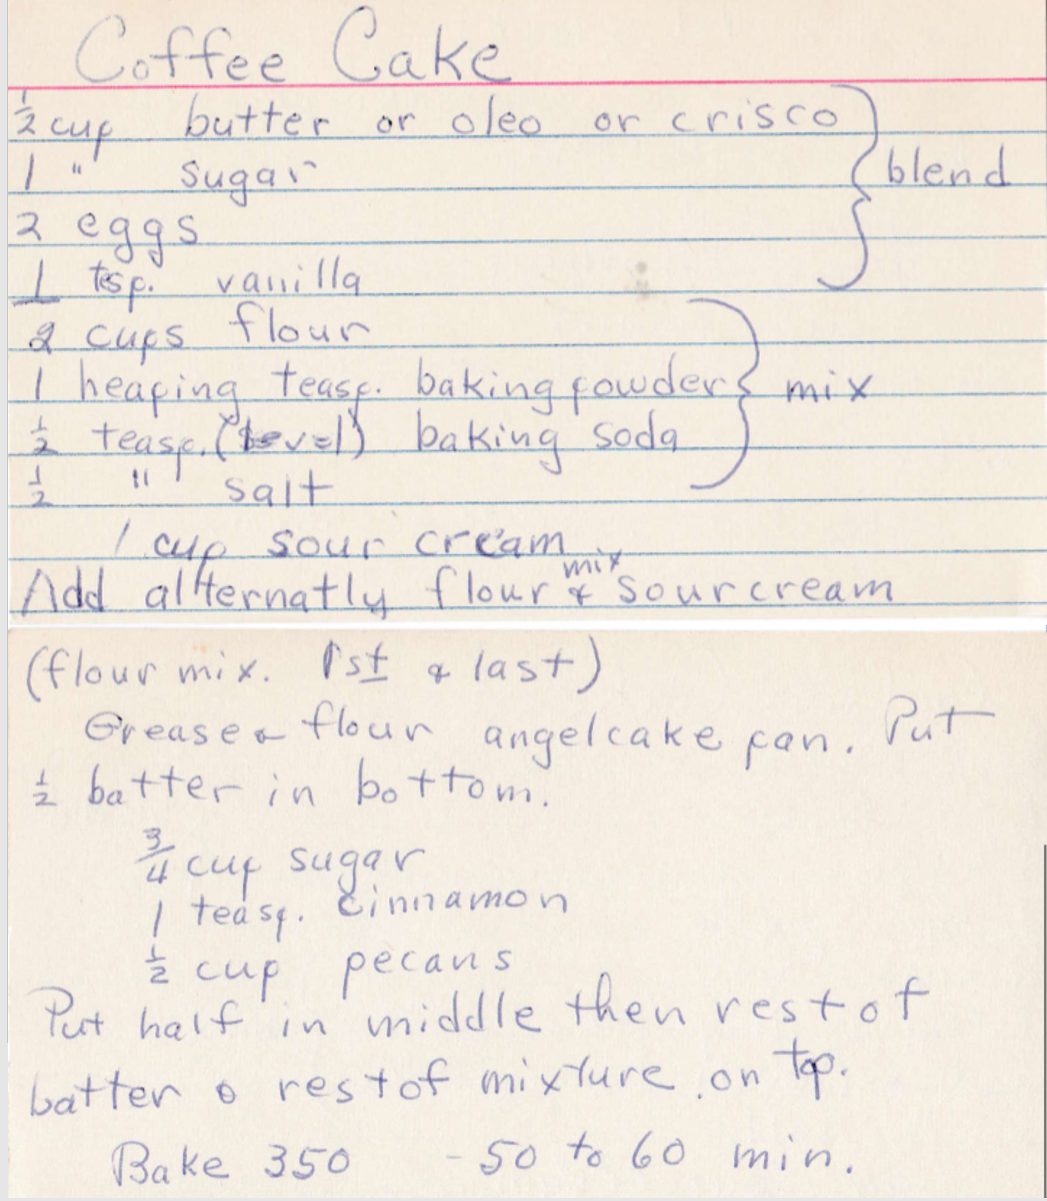 Coffee Cake
½ cup butter or oleo or crisco
1 " sugar
blend
2 eggs
1 tsp. vanilla
2 cups flour
1 heaping teasp. baking powder
mix
½ teasp. (level) baking soda
½ " salt
1 cup sour cream
Add allternatly flour mix & sour cream
(flour mix. 1st & last)
Grease & flour angelcake pan. Put
½ batter in bottom.
¾ cup sugar
1 teasp. cinnamon
½ cup pecans
Put half in middle then rest of
batter & rest of mixture on top.
Bake 350 - 50 to 60 min.